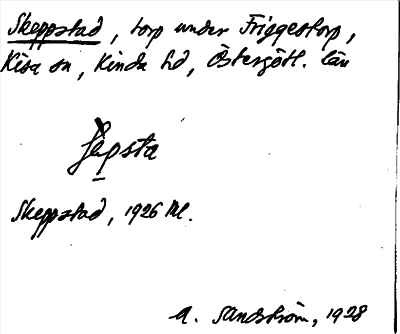 Skeppstad, torp under Friggestorp,
Kisa sn, Kinda hd, Östergötl. län
Skeppstad, 1926 Ml.
A. Sandström, 1928